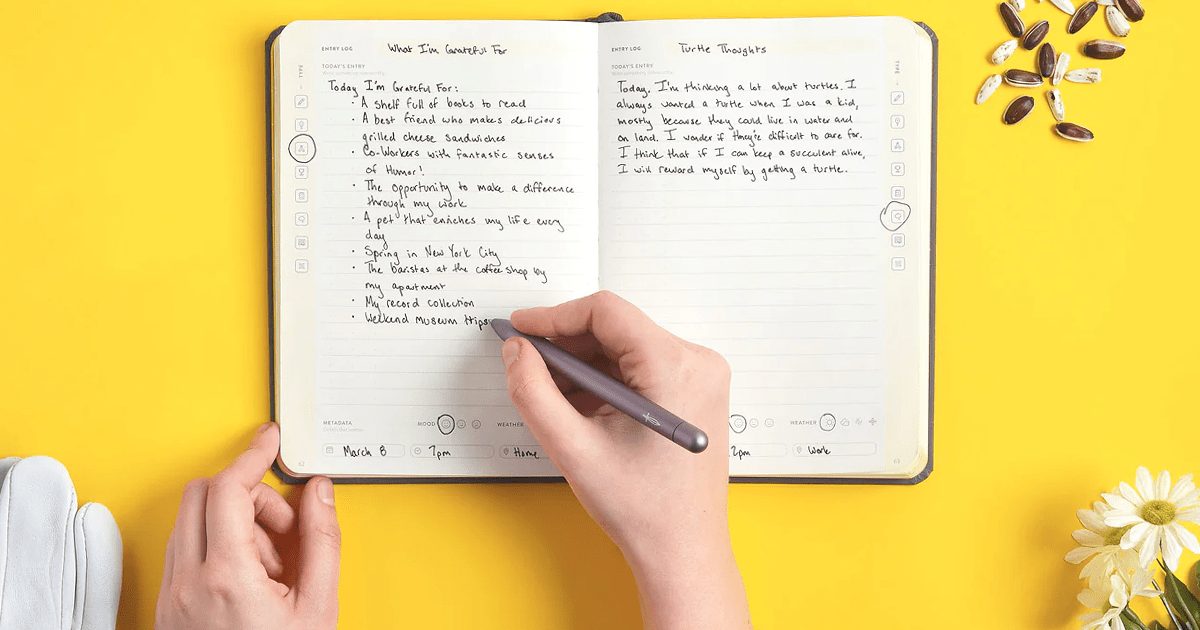 ENTRY LOG
What I'm Grateful For
TYPE
TODAY'S ENTRY
Today I'm Grateful For:
· A shelf full of books to read
· A best friend who makes delicious
grilled cheese sandwiches
· Co-Workers with fantastic senses
of Humor!
· The opportunity to make a difference
through my work
· A pet that enriches my life every
day
· Spring in New York City
· The baristas at the coffee shop by
my apartment
· My record collection
· Weekend Museum trips
METADATA
MOOD
WEATHER
March 8
7pm
Home
62
ENTRY LOG
Turtle Thoughts
TYPE
TODAY'S ENTRY
Today, I'm thinking a lot about turtles. I
always wanted a turtle when I was a kid,
mostly because they could live in water and
on land. I wonder if they're difficult to care for.
I think that if I can keep a succulent alive,
I will reward myself by getting a turtle.
WEATHER
2pm
Work
63